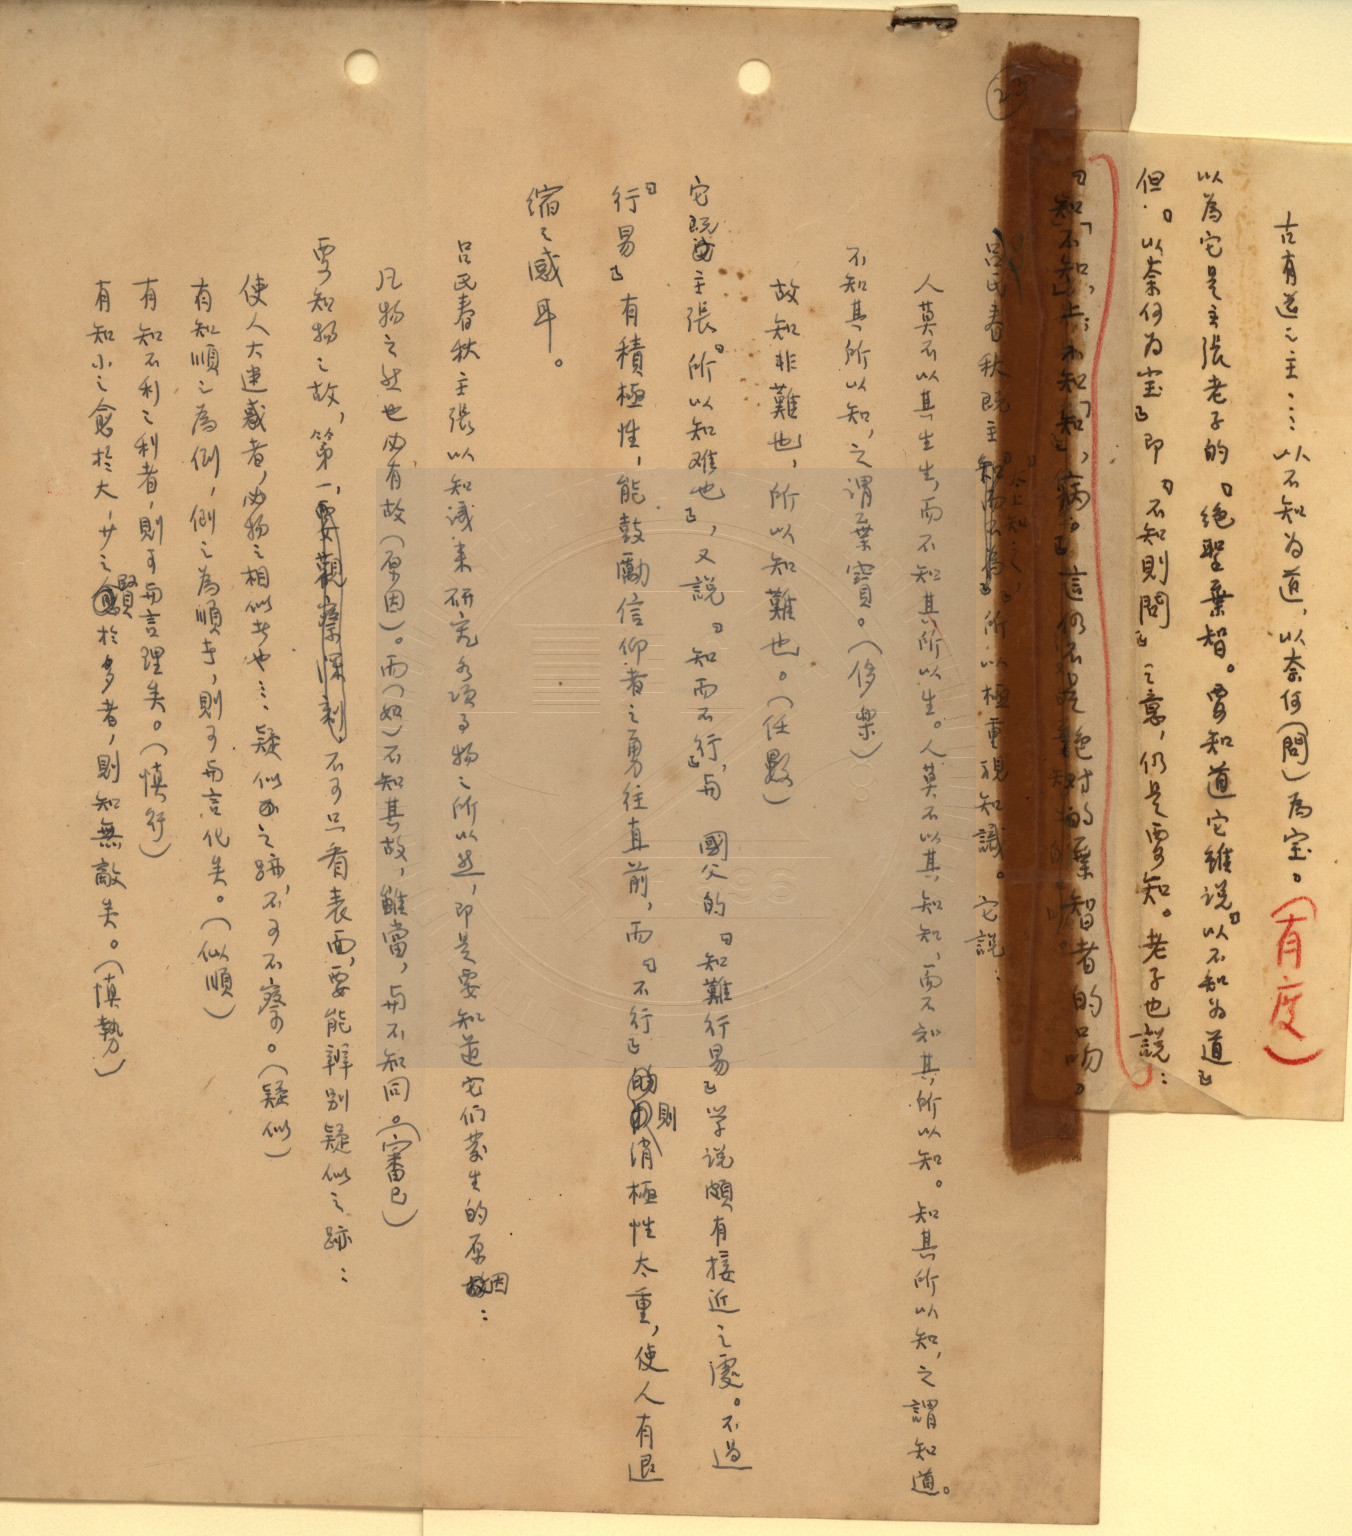 古有道之主…以不知为道，以奈何(問)為宝。(有度)
以為它是主張老子的『绝聖棄智。要知道它雖说『以不知为道』
但『以奈何为宝』即『不知則問』之意，仍是要知。老子也說：
『知「不知」，上；不知「知」，病。』這仍不是绝对的棄智者的口吻。
23
吕氏春秋既主『太上知之』，所以極重視知識。它說：
人莫不以其生生，而不知其所以生。人莫不以其知知，而不知其所以知。知其所以知，之謂知道。
不知其所以知，之謂棄寶。(侈樂)
故知非難也，所以知難也。(任數)
它既主張『所以知难也』，又說『知而不行』，与 國父的『知難行易』学说頗有接近之處。不過
『行易』有積極性，能鼓勵信仰者之勇往直前，而『不行』則消極性太重，使人有退
缩之感耳。
吕氏春秋主張以知識来研究各項事物之所以然，即是要知道它们發生的原因：
凡物之然也必有故(原因)。而(如)不知其故，雖當，与不知同。(審己)
要知物之故，第一，不可只看表面，要能辨别疑似之跡：
使人大迷惑者，必物之相似者也…疑似之跡，不可不察。(疑似)
有知順之為倒，倒之為順者，則可与言化矣。(似順)
有知不利之利者，則可与言理矣。(慎行)
有知小之愈於大，少之賢於多者，則知無敵矣。(慎勢)